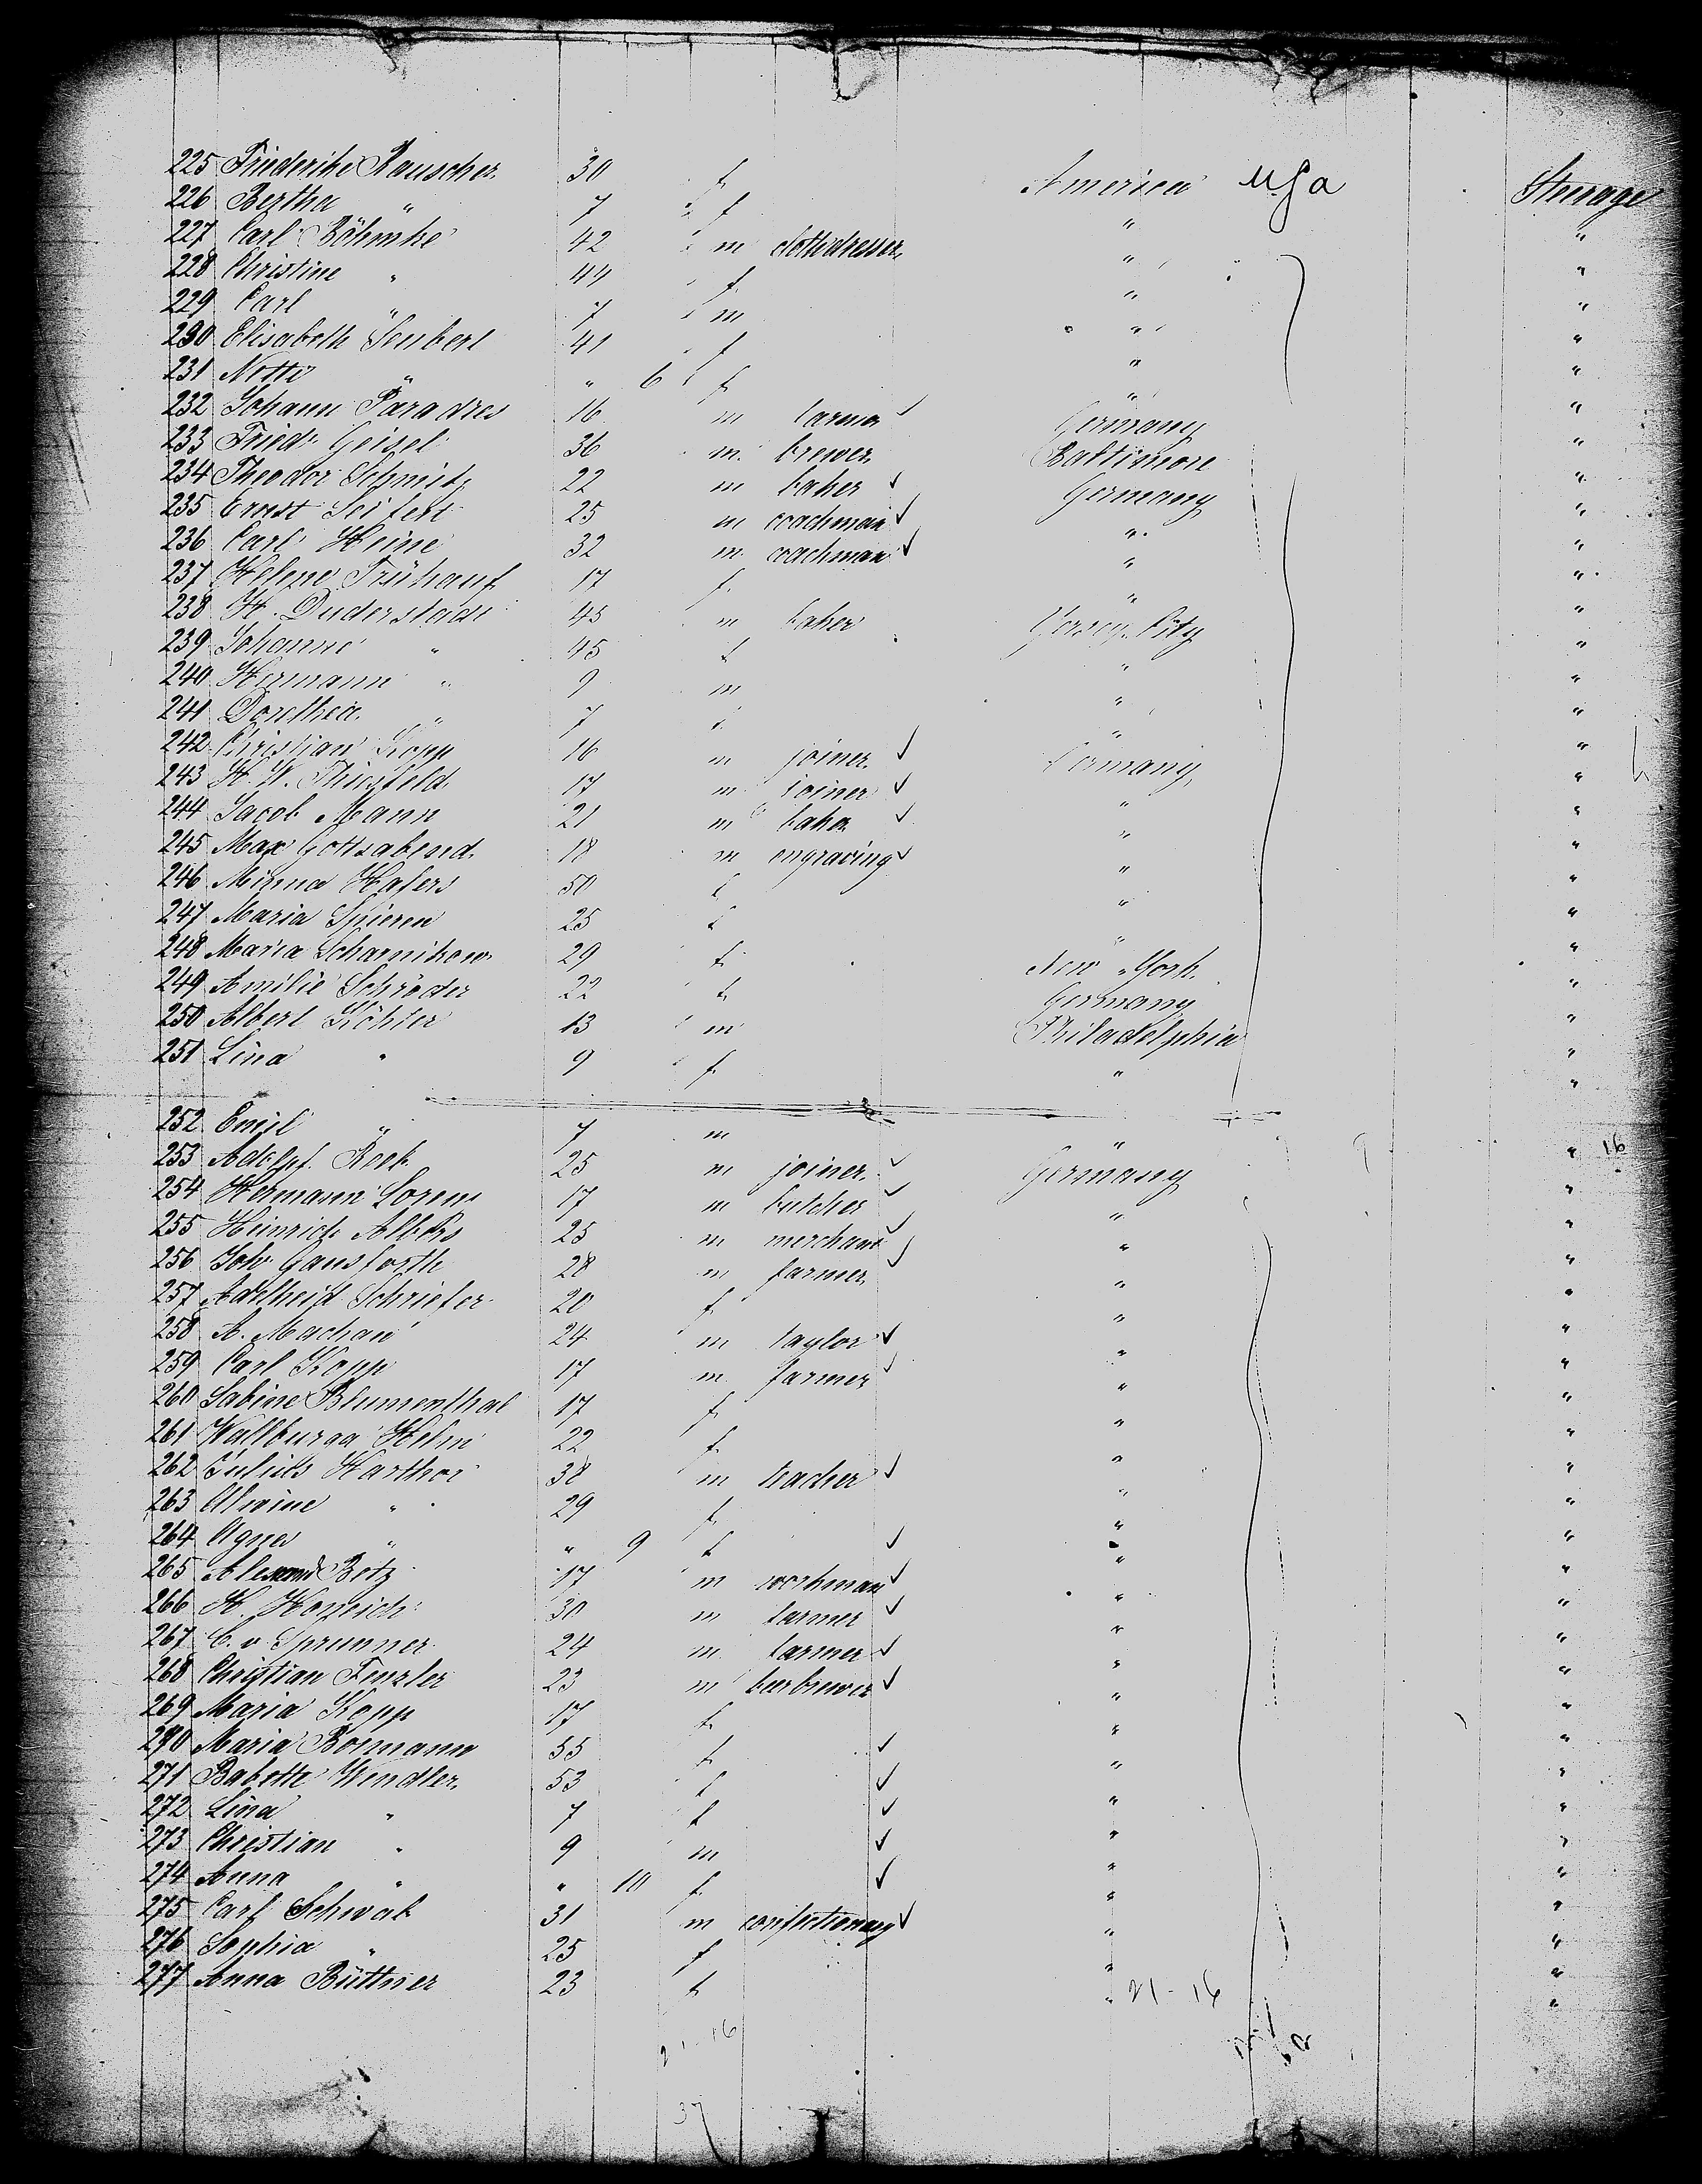 225 Friederike Rauscher 30 f America USA Steerage
226 Bertha " 7 f " "
227 Carl Böhmke 42 m clothdresser " "
228 Christine " 44 f " "
229 Carl " 7 m " "
230 Elisabeth Seubert 41 f " "
231 " " 6 f " "
232 Johann Paradies 16 m farmer ✓ Germany "
233 Friedr Geisel 36 m brewer Baltimore "
234 Theodor Schmitz 22 m baker ✓ Germany "
235 Ernst Seifert 25 m coachman ✓ " "
236 Carl Heine 32 m coachman ✓ " "
237 Helene Frühauf 17 f " "
238 H. Duderstadt 45 m baker Jersey City "
239 Johanne " 45 f " "
240 Hermann " 9 m " "
241 Dorothea " 7 f " "
242 Christian Kopp 16 m joiner ✓ Germany "
243 H. W. 17 m joiner ✓ " "
244 Jacob Mann 21 m baker ✓ " "
245 Max Gottsabend 18 m engraving ✓ " "
246 Minna Hafers 50 f " "
247 Maria 25 f " "
248 Maria Scharnikow 29 f New York "
249 Amilie Schröder 22 f Germany "
250 Albert Köhler 13 m Philadelphia "
251 Lina " 9 f " "
252 Emil " 7 m " "
253 Adolpf 25 m joiner ✓ Germany " 16
254 Hermann Lorens 17 m butcher ✓ " "
255 Heinrich Albers 25 m merchant ✓ " "
256 Joh Gansforth 28 m farmer ✓ " "
257 Adelheid Schriefer 20 f " "
258 A. Machan 24 m taylor ✓ " "
259 Carl Kopp 17 m farmer ✓ " "
260 Sabine Blumenthal 17 f " "
261 Wallburga Helm 22 f " "
262 Julius 38 m teacher ✓ " "
263 Alwine " 29 f " "
264 Agnes " " 9 f ✓ " "
265 Betz 17 m ✓ " "
266 H. 30 m farmer ✓ " "
267 C. v Sprunner 24 m farmer ✓ " "
268 Christian Fenzler 23 m beerbrewer ✓ " "
269 Maria Kopp 17 f " "
270 Maria Bormann 55 f ✓ " "
271 Babette Wendler 53 f ✓ " "
272 Lina " 7 f ✓ " "
273 Christian " 9 m ✓ " "
274 Anna " " 10 f ✓ " "
275 Carl Schwab 31 m confectionary ✓ " "
276 Sophia " 25 f " "
277 Anna Büttner 23 f " 21-16 "
21-16
37